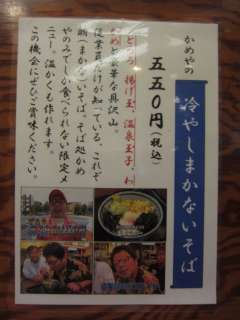 かめやの
冷やしまかないそば
五五〇円(税込)
とろろ、揚げ玉、温泉玉子、わ
かめと豪華な具沢山。
従業員だけが知っている、これぞ
賄(まかない)そば。そば処かめ
やのみでしか食べられない限定メ
ニュー。温かくも作れます。
この機会にぜひご賞味ください。